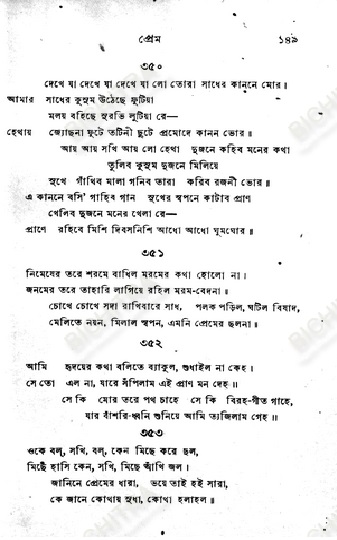 প্রেম ১৪৯
৩৫০
দেখে যা দেখে যা দেখে যা লো তোরা সাধের কাননে মোর॥
আমার সাধের কুসুম উঠেছে ফুটিয়া
মলয় বহিছে সুরভি লুটিয়া রে—
হেথায় জ্যোছনা ফুটে তটিনী ছুটে প্রমোদে কানন ভোর॥
আয় আয় সখি আয় লো হেথা দুজনে কহিব মনের কথা
তুলিব কুসুম দুজনে মিলিয়ে
সুখে গাঁথিব মালা গনিব তারা করিব রজনী ভোর॥
এ কাননে বসি' গাহিব গান সুখের স্বপনে কাটাব প্রাণ
খেলিব দুজনে মনের খেলা রে—
প্রাণে রহিবে মিশি দিবসনিশি আধো আধো ঘুমঘোর॥
৩৫১
নিমেষের তরে শরমে বাধিল মরমের কথা হোলো না।
জনমের তরে তাহারি লাগিয়ে রহিল মরম-বেদনা।
চোখে চোখে সদা রাখিবারে সাধ, পলক পড়িল, ঘটিল বিষাদ,
মেলিতে নয়ন, মিলাল স্বপন, এমনি প্রেমের ছলনা।
৩৫২
আমি হৃদয়ের কথা বলিতে ব্যাকুল, শুধাইল না কেহ।
সে তো এল না, যারে সঁপিলাম এই প্রাণ মন দেহ॥
সে কি মোর তরে পথ চাহে সে কি বিরহ-গীত গাহে,
যার বাঁশরি-ধ্বনি শুনিয়ে আমি ত্যজিলাম গেহ॥
৩৫৩
ওকে বল্, সখি, বল্, কেন মিছে করে ছল,
মিছে হাসি কেন, সখি, মিছে আঁখি জল।
জানিনে প্রেমের ধারা, ভয়ে তাই হই সারা,
কে জানে কোথায় সুধা, কোথা হলাহল॥